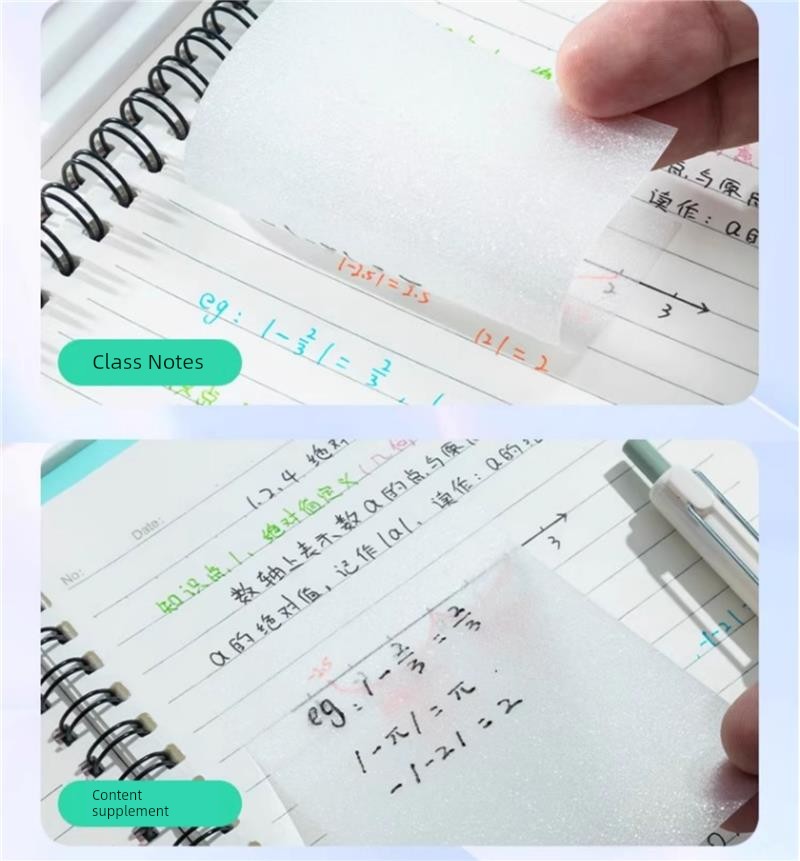 点与原
读作：a的
2
3
|-2.5|=2.5
|2|=2
eg: |-2/3|=2/3,
Class Notes
1.2.4 绝对
Date:
No:
知识点1、绝对值定义
数轴上表示数a的点与原
a的绝对值，记作|a|，读作：a的
3
-2.5
eg: |-2/3|=2/3
|-π|=π
-|-2|=2
-|-2|=
Content
supplement